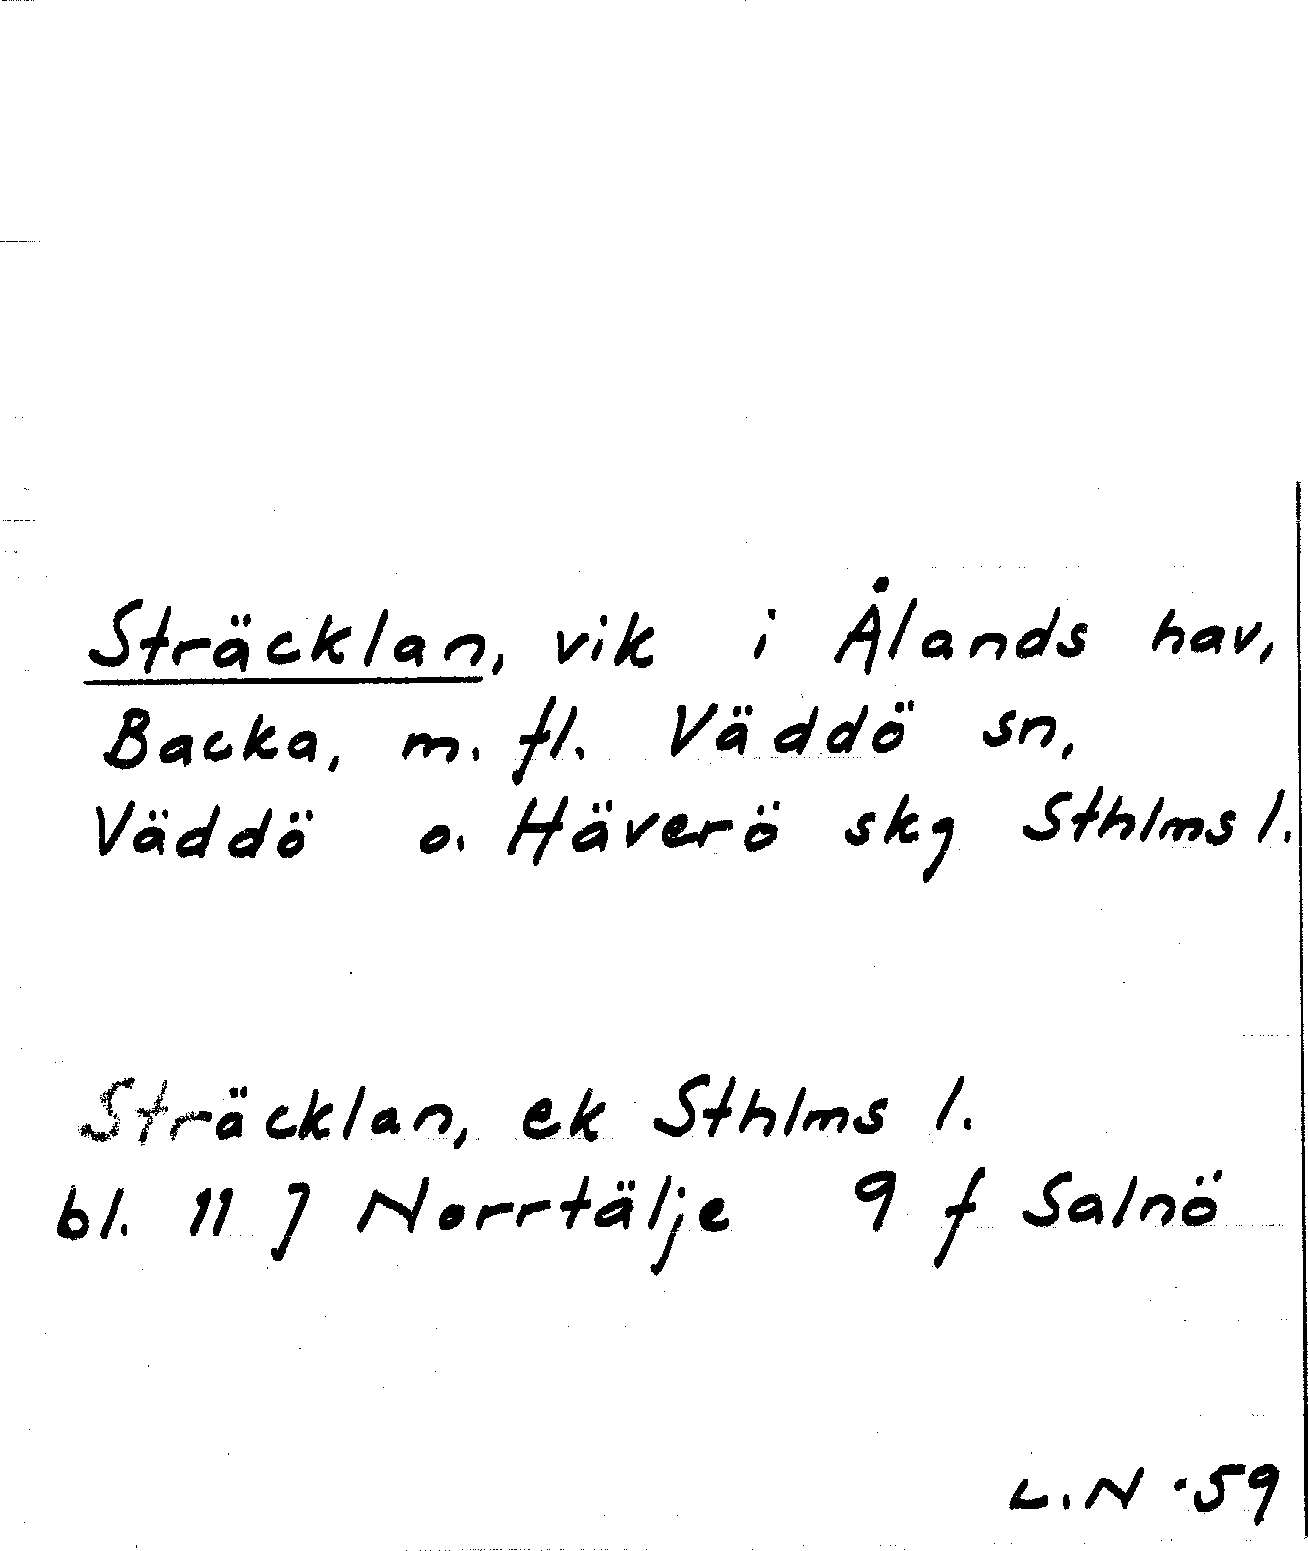 Sträcklan, vik i Ålands hav,
Backa, m. fl. Väddö sn,
Väddö o. Häverö skg Sthlms l.
Sträcklan, ek Sthlms l.
bl. 11 J Norrtälje 9 f Salnö
L.N -59